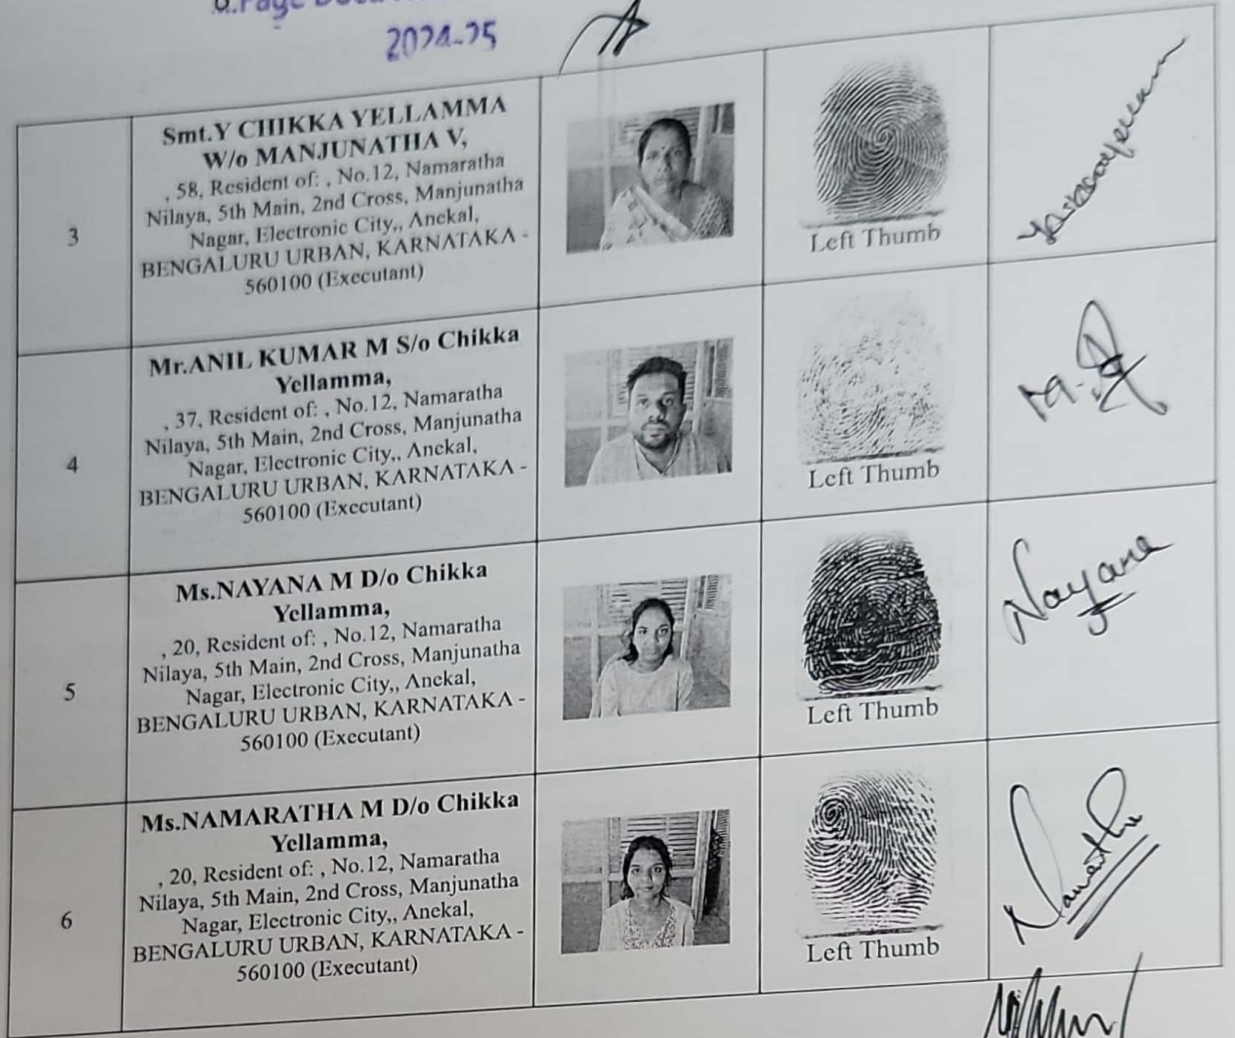 2024-25
3
Smt.Y CHIKKA YELLAMMA
W/o MANJUNATHA V,
, 58, Resident of: , No.12, Namaratha
Nilaya, 5th Main, 2nd Cross, Manjunatha
Nagar, Electronic City,, Anekal,
BENGALURU URBAN, KARNATAKA -
560100 (Executant)
Left Thumb
4
Mr.ANIL KUMAR M S/o Chikka
Yellamma,
, 37, Resident of: , No.12, Namaratha
Nilaya, 5th Main, 2nd Cross, Manjunatha
Nagar, Electronic City,, Anekal,
BENGALURU URBAN, KARNATAKA -
560100 (Executant)
Left Thumb
5
Ms.NAYANA M D/o Chikka
Yellamma,
, 20, Resident of: , No.12, Namaratha
Nilaya, 5th Main, 2nd Cross, Manjunatha
Nagar, Electronic City,, Anekal,
BENGALURU URBAN, KARNATAKA -
560100 (Executant)
Left Thumb
Nayana
6
Ms.NAMARATHA M D/o Chikka
Yellamma,
, 20, Resident of: , No.12, Namaratha
Nilaya, 5th Main, 2nd Cross, Manjunatha
Nagar, Electronic City,, Anekal,
BENGALURU URBAN, KARNATAKA -
560100 (Executant)
Left Thumb